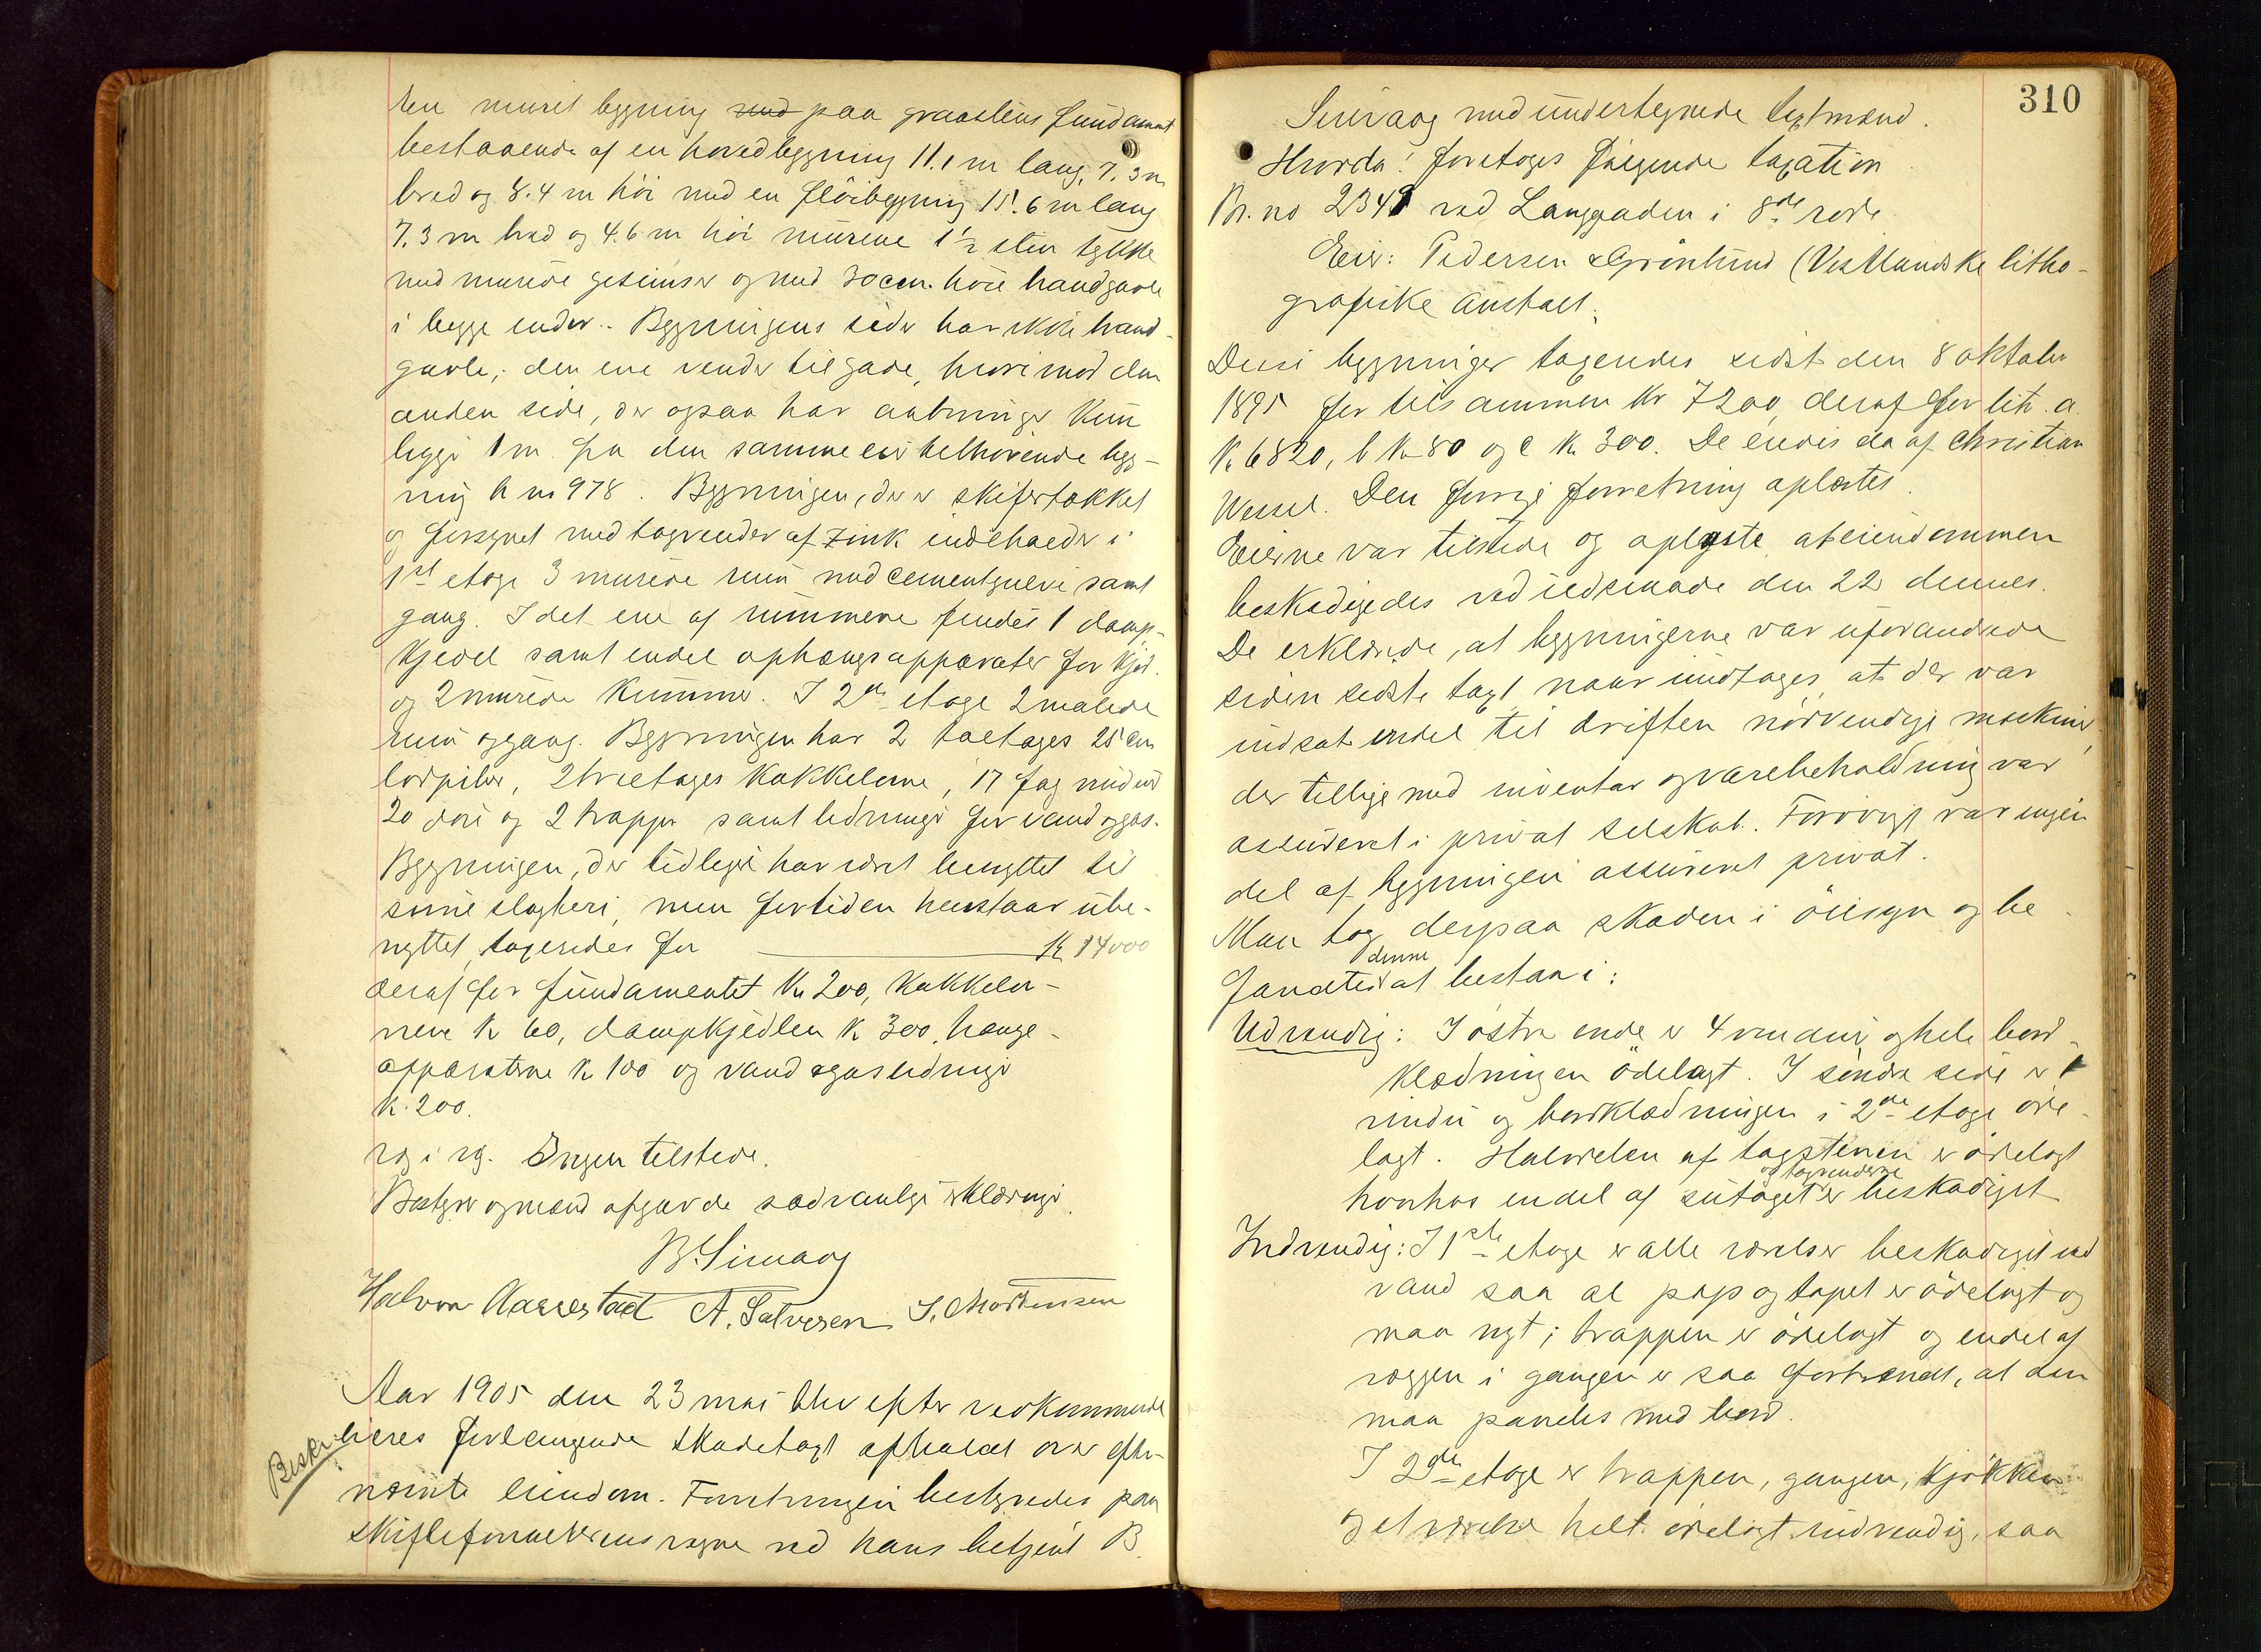 ten muret bygning med paa graastens fundament
bestaaende af en hovedbygning 11.1 m lang, 7.3 m
bred og 8.4 m høi med en fløibygning 15.6 m lang
7.3 m bred og 4.6 m høi murene 1½ sten tykke
med murede gesimser og med 30 cm. høie brandgavle
i begge ender. Bygningens sider har ikke brand-
gavle; den ene vender til gade, hvorimod den
anden side, der ogsaa har aabninger kun
ligger 1 m fra den samme eier tilhørende byg-
ning br no 978. Bygningen, der er skifertækket
og forsynet med tagrender af zink indeholder i
1ste etage 3 murede rum med cementgulve samt
gang. I det ene af rummene findes 1 damp-
kjedel samt endel ophængsapparater for kjød
og 2 murede kummer. I 2den etage 2 malede
rum og gang. Bygningen har 2 toetages 25 cm
lodpiber, 2 treetages kakkelovne, 17 fag vinduer
20 døre og 2 trapper samt ledninger for vand og gas.
Bygningen, der tidligere har været benyttet til
svineslagteri, men fortiden henstaar ube-
nyttet, taxeredes for Kr 14000
deraf for fundamentet Kr 200, kakkelov-
nene Kr 60, dampkjedlen Kr 300, hænge-
apparaterne Kr 100 og vand og gasledninger
Kr. 200.
rg i rg. Ingen tilstede.
Bestyrer og mænd afgav de sædvanlige erklæringer.
B. Simaog
Halvor Aarrestad A. Salvesen S. Mortensen
Aar 1905 den 23 mai blev efter vedkommende
Beskr.
eieres forlangende skadetaxt afholdt over efter-
nævnte eiendom. Forretningen bestyredes paa
skifteforvalterens vegne ved hans betjent B.
310
Simaog med undertegnede taxtmænd.
Hvorda: foretoges følgende taxation
Br. no 2349 ved Langgaden i 8de rode
Eier: Pedersen & Grønlund (Vestlandske litho-
grafiske anstalt.
Disse bygninger taxeredes sidst den 8 oktober
1895 for tilsammen Kr 7200, deraf for lit. a.
Kr 6820, b Kr 80 og c Kr 300. De eiedes da af Christian
Wessel. Den forrige forretning oplæstes.
Eierne var tilstede og oplyste, at eiendommen
beskadigedes ved ildsvaade den 22 dennes.
De erklærede, at bygningerne var uforandrede
siden sidste taxt naar undtages, at der var
indsat endel til driften nødvendige maskiner,
der tillige med inventar og varebeholdning var
assureret i privat selskab. Forøvrigt var ingen
del af bygningen assureret privat.
Man tog derpaa skaden i øiesyn og be-
fandtes denne at bestaa i:
Udvendig: I østre ende er 4 vinduer og hele bord-
klædningen ødelagt. I søndre side er 1
vindu og bordklædningen i 2de etage øde-
lagt. Halvdelen af tagstenen er ødelagt
hvorhos endel af sutaget og tagrenderne er beskadiget
Indvendig: I 1ste etage er alle værelser beskadiget ved
vand saa al pap og tapet er ødelagt og
maa nyt; trappen er ødelagt og endel af
væggen i gangen er saa forbrændt, at den
maa paneles med bord.
I 2den etage er trappen, gangen, kjøkken
og et værelse helt ødelagt indvendig, saa